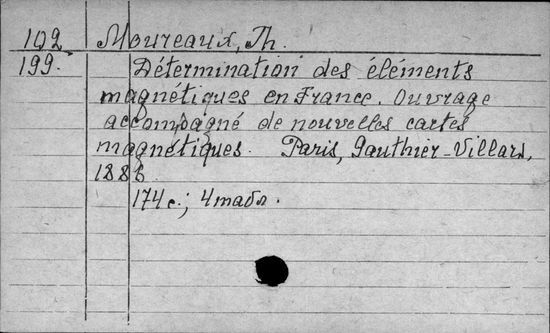 102 Moureaux, Th.
199. Détermination des éléments
magnétiques en France. Ouvrage
accompagné de nouvelles cartes
magnétiques. Paris, Gauthier-Villars,
1886.
174 с.; 4 табл.